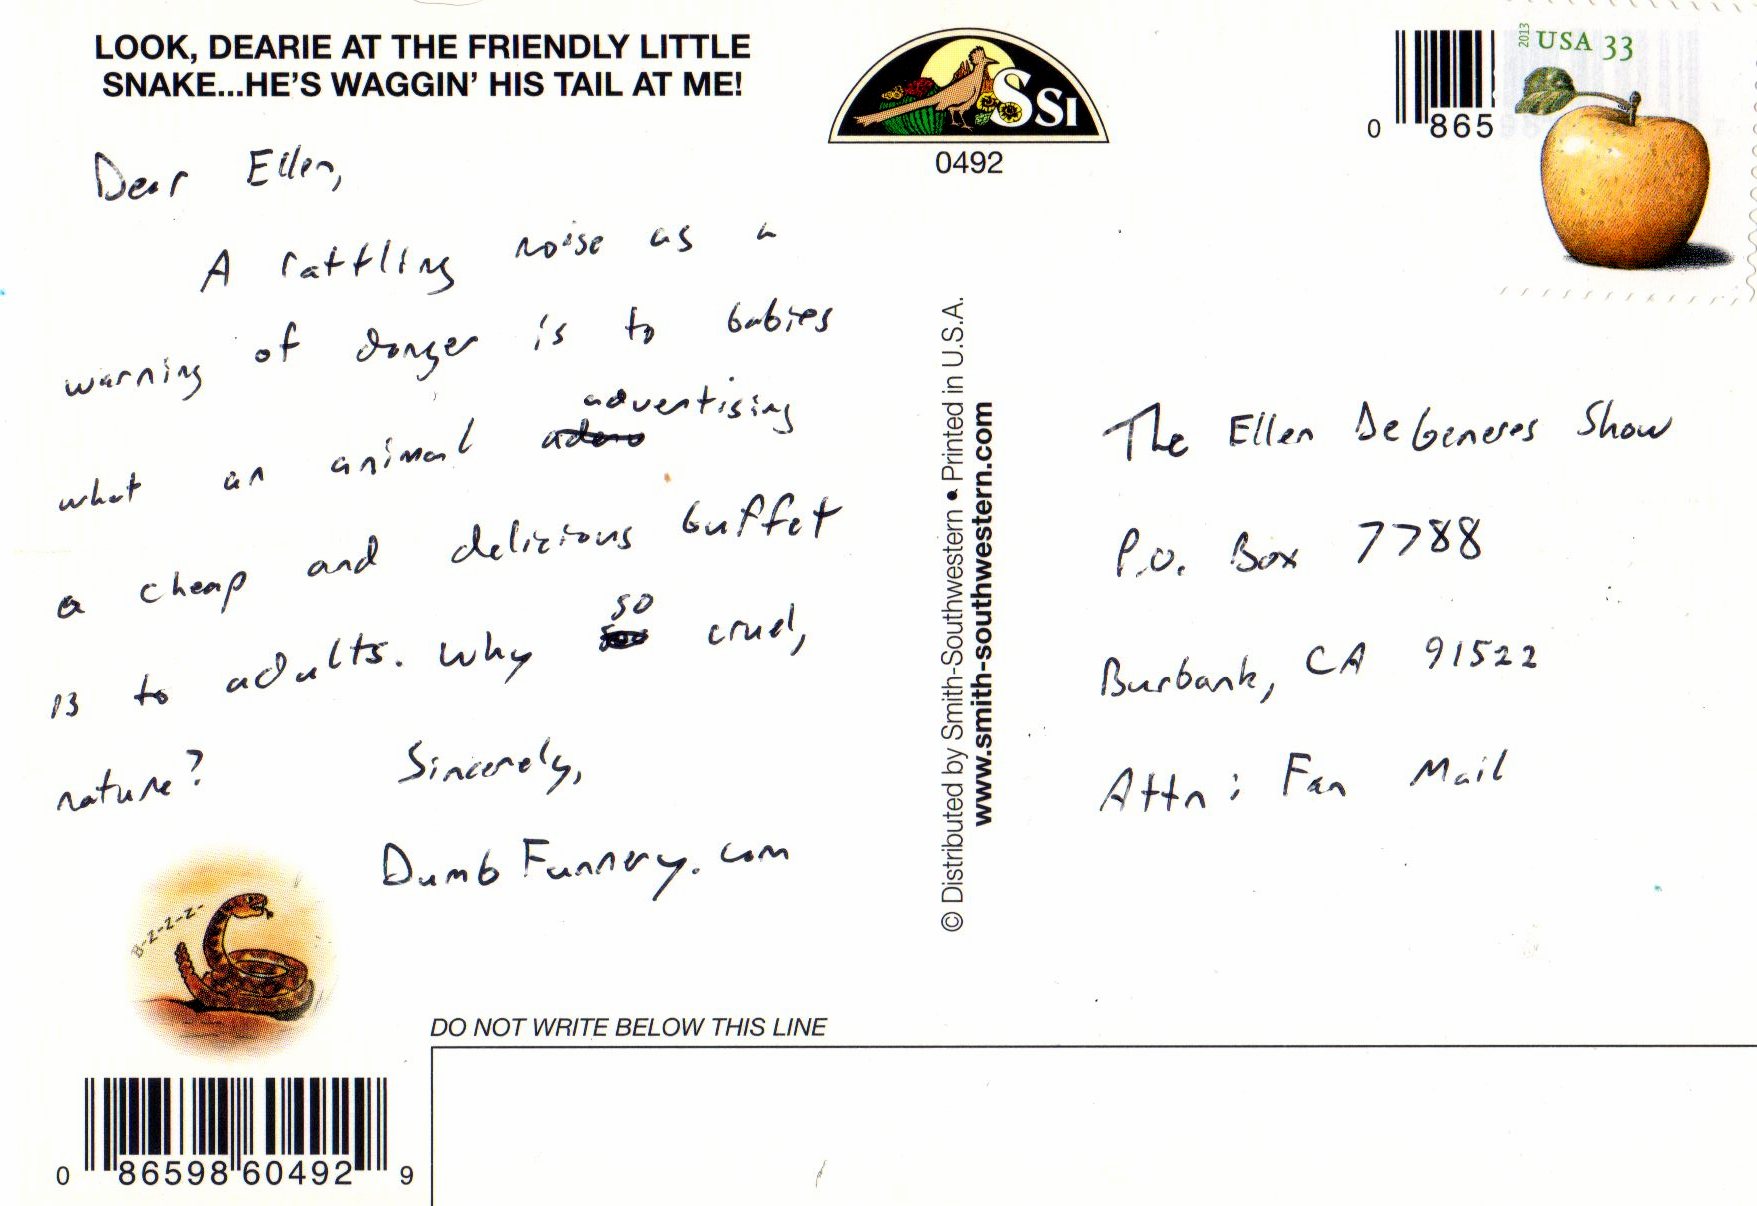 LOOK, DEARIE AT THE FRIENDLY LITTLE
SNAKE...HE'S WAGGIN' HIS TAIL AT ME!
Dear Ellen,
A rattling noise as a
warning of danger is to babies
what an animal advertising
a cheap and delicious buffet
is to adults. Why so cruel,
nature?
Sincerely,
DumbFunnery.com
B-Z-Z-Z-
0 86598 60492 9
SSI
0492
© Distributed by Smith-Southwestern • Printed in U.S.A.
www.smith-southwestern.com
0 865
2013 USA 33
The Ellen DeGeneres Show
P.O. Box 7788
Burbank, CA 91522
Attn: Fan Mail
DO NOT WRITE BELOW THIS LINE